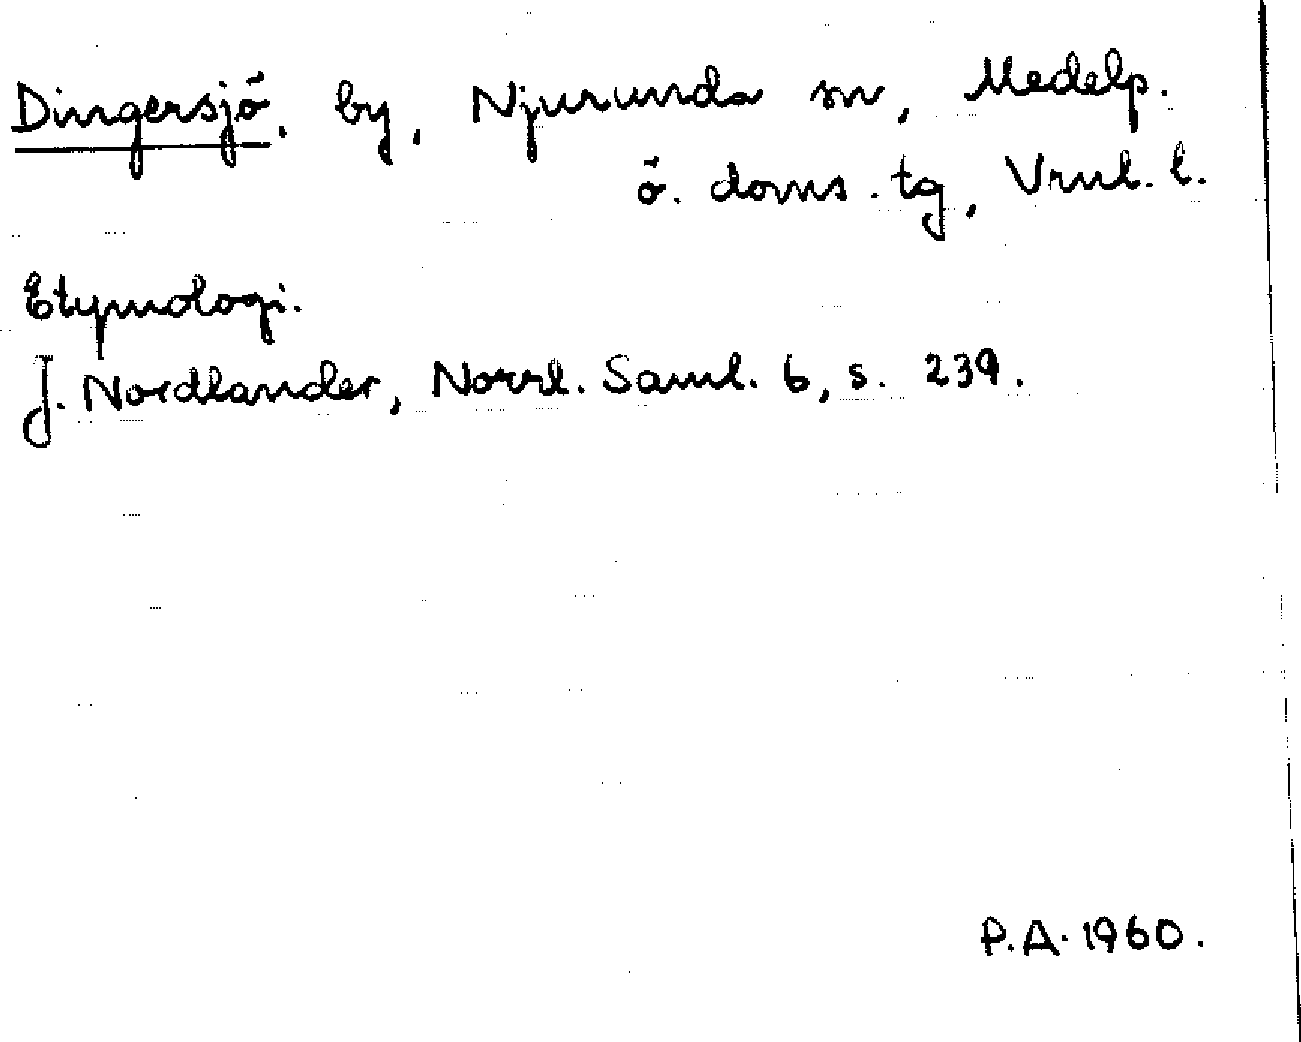 Dingersjö, by, Njurunda sn, Medelp.
ö. doms. tg, Vnul. l.
Etymologi.
J. Nordlander, Norrl. Saml. 6, s. 239.
P.A. 1960.